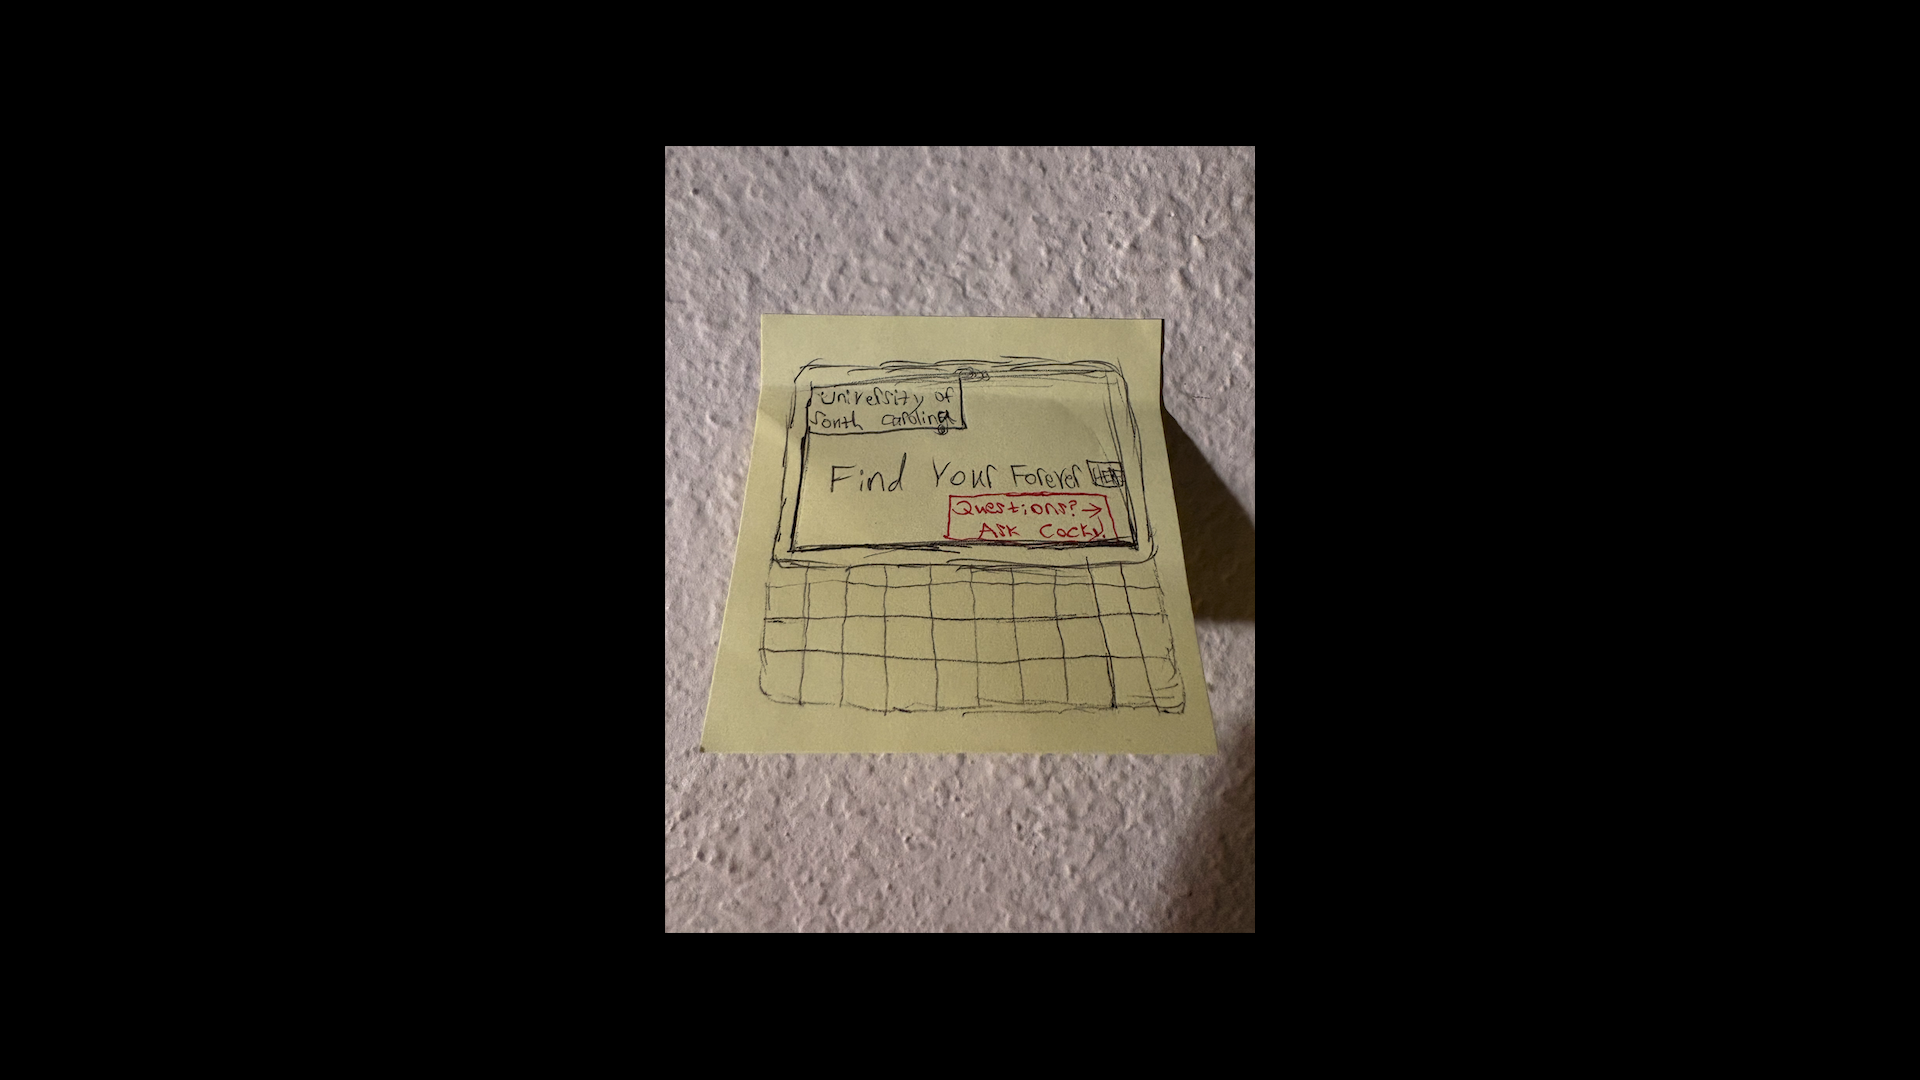 University of
South Carolina
Find Your Forever HERE
Questions? →
Ask Cocky!